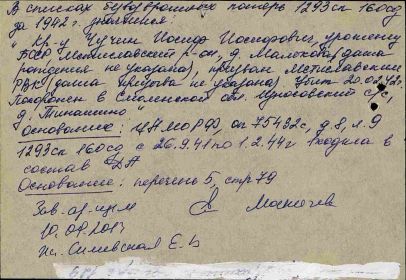 В списках безвозвратных потерь 1293сп 160сд
за 1942 г. значится:
"Кр-ц Чучин Иосиф Иосифович, уроженец
БССР Мстиславский р-он, д. Малехово (дата
рождения не указана), призван Мстиславским
РВК (дата призыва не указана). Убит 20.02.42г.
Похоронен в Смоленской обл. с/с,
д.
Основание: ЦАМО РФ, оп 75432с, д.8, л.9
1293сп 160сд с 26.9.41 по 1.2.44г входила в
состав ДА
Основание: перечень 5, стр 79
Зав. ар-щем
10.09.2017
Ис. Е. В